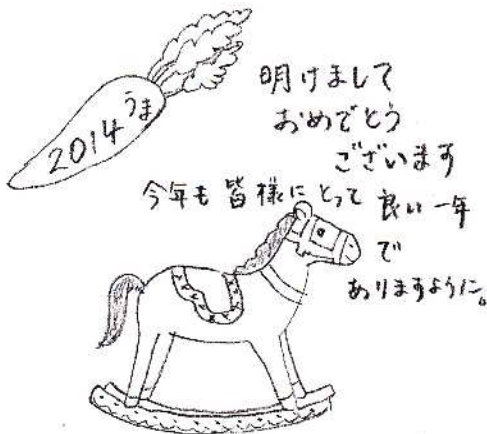 2014 うま
明けまして
おめでとう
ございます
今年も皆様にとって良い一年
で
ありますように。